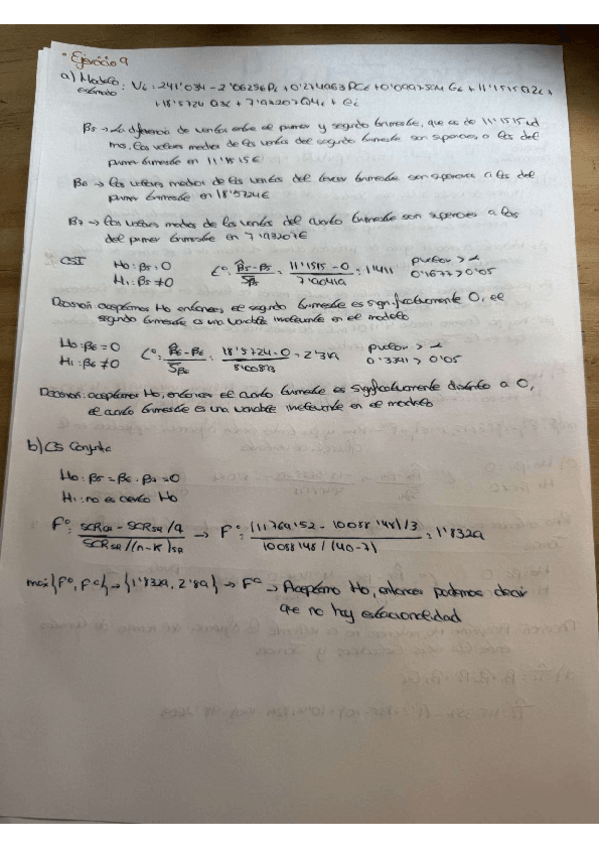 · Ejercicio 9
a) Modelo estimado: Vt = 241'034 - 2'06256Pt + 0'274963PCt + 0'0997504 Gt + 11'1515Q2t +
+ 18'5724 Q3t + 7'97207Q4t + ei
β5 → La diferencia de ventas entre el primer y segundo trimestre, que es de 11'1515 ud
mas, los valores medios de las ventas del segundo trimestre son superiores a los del
primer trimestre en 11'1515€
β6 → Los valores medios de las ventas del tercer trimestre son superiores a los del
primer trimestre en 18'5724€
β7 → Los valores medios de las ventas del cuarto trimestre son superiores a los
del primer trimestre en 7'97207€
CSI
H0: β5 = 0
H1: β5 ≠ 0
t0 = β5 - β5 / Sβ5 = 11'1515 - 0 / 7'90419 = 1'411
pvalor > α
0'1677 > 0'05
Decisión: aceptamos H0, entonces, el segundo trimestre es significativamente 0, el
segundo trimestre es una variable irrelevante en el modelo
H0: β6 = 0
H1: β6 ≠ 0
t0 = β6 - β6 / Sβ6 = 18'5724 - 0 / = 2'319
pvalor > α
0'3341 > 0'05
Decision: aceptamos H0, entonces el cuarto trimestre es significativamente distinto a 0,
el cuarto trimestre es una variable irrelevante en el modelo
b) CS Conjunta
H0: β5 = β6 = β7 = 0
H1: no es cierto H0
F0 = SCRCR - SCRSR / q / SCRSR / (n-K)SR → F0 = (11769'52 - 10058'48) / 3 / 10058'48 / (40-7) = 1'8329
max{F0, Fα} → {1'8329, 2'89} → Fα → Aceptamo H0, entonces podemos decir
que no hay estacionalidad